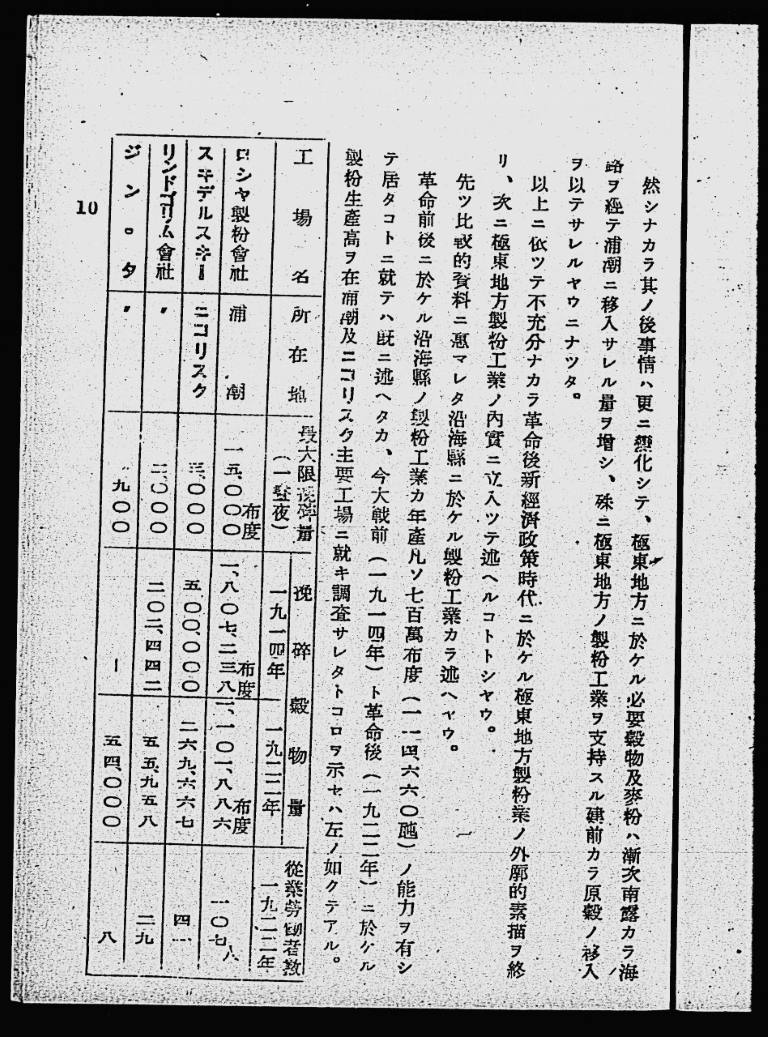 然シナカラ其ノ後事情ハ更ニ變化シテ、極東地方ニ於ケル必要穀物及麥粉ハ漸次南露カラ海
路ヲ經テ浦潮ニ移入サレル量ヲ增シ、殊ニ極東地方ノ製粉工業ヲ支持スル建前カラ原穀ノ移入
ヲ以テサレルヤウニナツタ。
以上ニ依ツテ不充分ナカラ革命後新經濟政策時代ニ於ケル極東地方製粉業ノ外廓的素描ヲ終
リ、次ニ極東地方製粉工業ノ內實ニ立入ツテ述ヘルコトトシヤウ。
先ツ比較的資料ニ惠マレタ沿海縣ニ於ケル製粉工業カラ述ヘヤウ。
革命前後ニ於ケル沿海縣ノ製粉工業カ年產凡ソ七百萬布度(一一四、六六〇瓲)ノ能力ヲ有シ
テ居タコトニ就テハ旣ニ述ヘタカ、今大戰前(一九一四年)ト革命後(一九二二年)ニ於ケル
製粉生產高ヲ在浦潮及ニコリスク主要工場ニ就キ調査サレタトコロヲ示セハ左ノ如クテアル。
工場名 所在地 最大限挽碎量(一晝夜) 挽碎穀物量 一九一四年 一九二二年 從業勞働者數 一九二二年
ロシヤ製粉會社 浦潮 一五、〇〇〇布度 一、八〇七、二三八布度 一、一〇一、八八六布度 一〇七人
スキデルスキー ニコリスク 三、〇〇〇 五〇〇、〇〇〇 二六九、六六七 四一
リンドゴリム會社 〃 二、〇〇〇 二〇二、四四二 五五、九五八 二九
ジンロタ 〃 九〇〇 ー 五四、〇〇〇 八
10